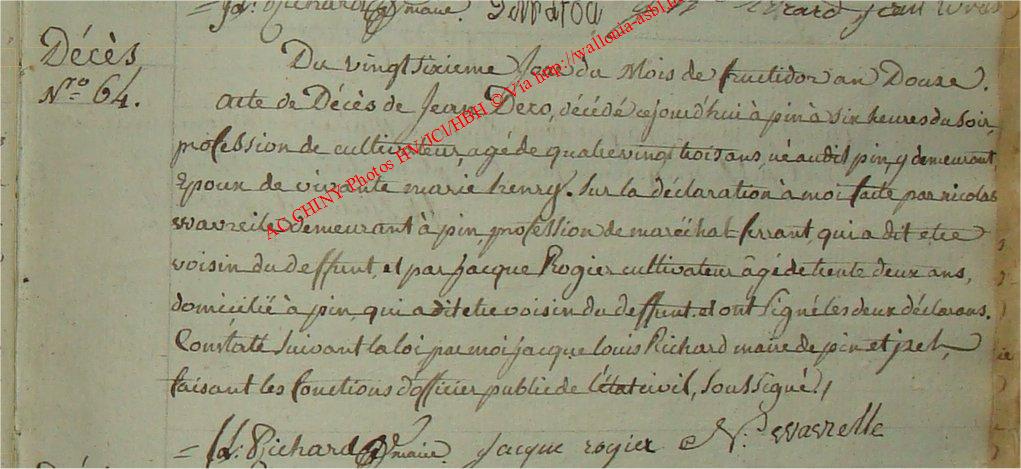 Richard maire.
Décès
Nro 64.
Du vingt sixieme Jour du Mois de fructidor an Douze.
acte de Décès de Jean Dero, décédé cejourd'hui à pin à six heures du soir,
profession de cultivateur, agé de quatrevingt trois ans, né audit pin, y demeurant,
Epoux de vivante marie henry. Sur la déclaration à moi faite par nicolas
wavreile demeurant à pin, profession de maréchal ferrant, qui a dit etre
voisin du deffunt, et par Jacque Rogier cultivateur âgé de trente deux ans,
domicilié à pin, qui a dit etre voisin du deffunt. et ont signé les deux déclarans.
Constaté suivant la loi par moi jacque louis Richard maire de pin et
faisant les fonctions d'officier public de l'état civil, soussigné,
Richard maire. jacque rogier N. wavrelle
AC CHINY Photos HV/ICI/HBH © Via http://wallonia-asbl